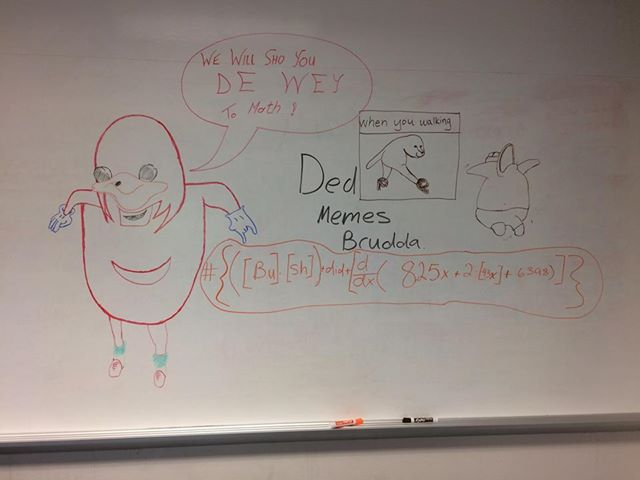 WE WILL SHO YOU
DE WEY
To Math!
when you walking
Ded
Memes
Brudda.
#{([Bu]·[sh])+did+[d/dx( 825x+2·[43x]+6398)]}
EXPO